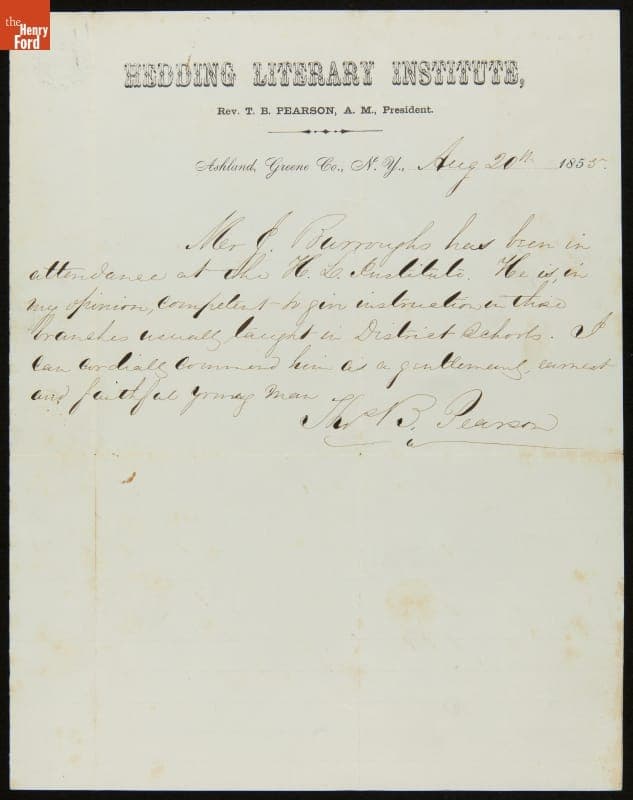 the
Henry
Ford
HEDDING LITERARY INSTITUTE,
Rev. T. B. PEARSON, A. M., President.
Ashland, Greene Co., N. Y., Aug 20th 1855.
Mr J. Burroughs has been in
attendance at the H. L. Institute. He is, in
my opinion, competent to give instruction in those
branches usually taught in District Schools. I
can cordially commend him as a gentlemanly, earnest
and faithful young man
Thos B. Pearson